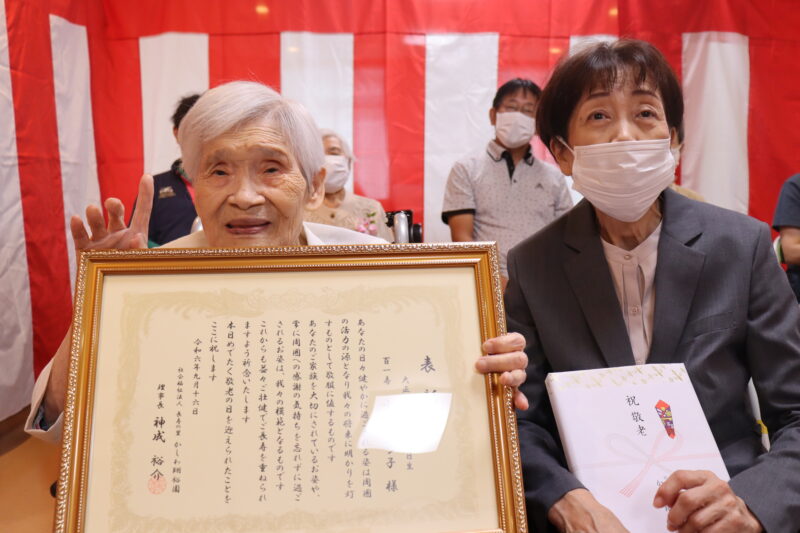 表
百一寿
生
子 様
あなたの日々健やかに過される姿は周囲
の活力の源となり我々の将来に明かりを灯
すものとして敬服に値するものです
あなたのご家族を大切にされているお姿や、
常に周囲への感謝の気持ちを忘れずに過ご
されるお姿は、我々の模範となるものです
これからも益々ご壮健でご長寿を重ねられ
ますよう祈念いたします
本日めでたく敬老の日を迎えられたことを
ここに祝します
令和六年九月十六日
社会福祉法人 長寿の里 かしわ翔裕園
理事長 神成 裕介
祝 敬老